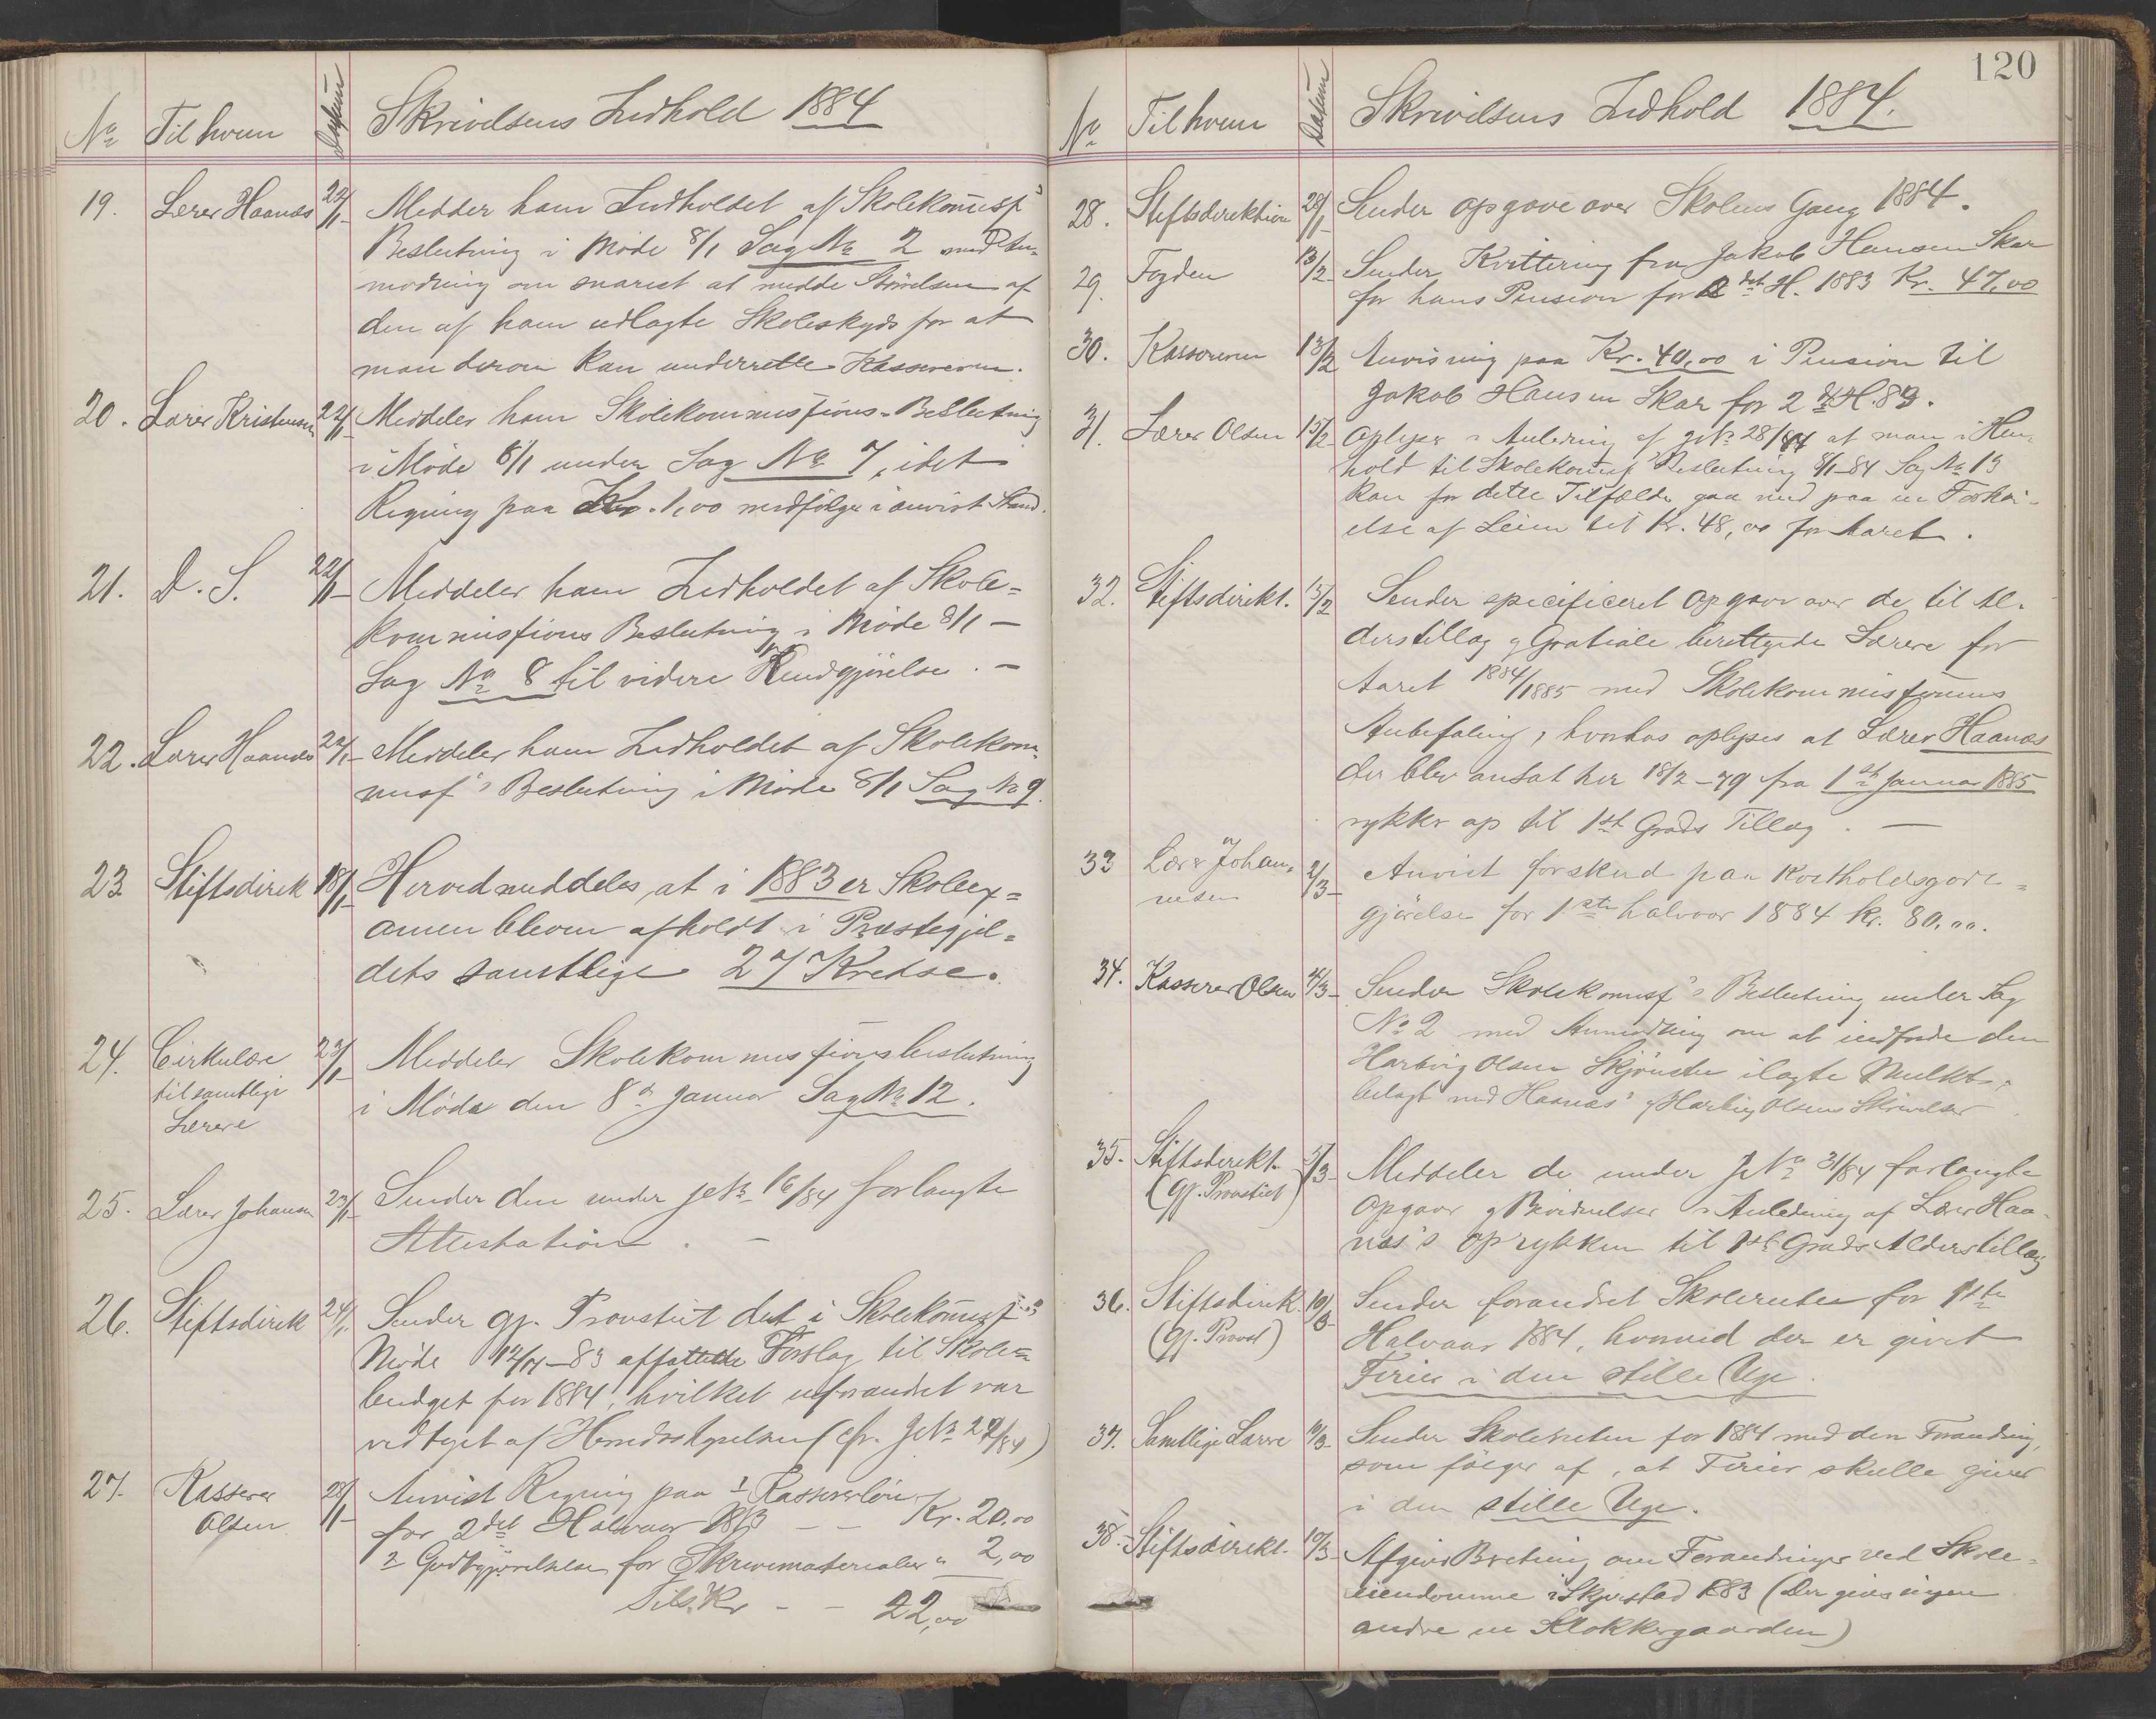 No Til hvem Datum Skrivelsens Indhold 1884
19. Lærer Haanæs 22/1- Medder ham Indholdet af Skolekommisj's
Beslutning i Møde 8/1 Sag No 2 med An-
modning om snarest at medde Størrelsen af
den af ham udlagte Skoleskyds for at
man derom kan underrette Kassereren.
20. Lærer Kristensen 22/1- Meddeler ham Skolekommissions-Beslutning
i Møde 8/1 under Sag No 7, idet
Regning paa Kr. 1,00 medfølger i anvist Stand.
21. D. S. 22/1- Meddeler ham Indholdet af Skole=
kommissions Beslutning i Møde 8/1 -
Sag No 8 til videre Kundgjørelse. -
22. Lærer Haanæs 22/1- Meddeler ham Indholdet af Skolekom-
misj's Beslutning i Møde 8/1 Sag No 9.
23 Stiftsdirek 18/1- Herved meddeles, at i 1883 er Skoleex=
amen bleven afholdt i Præstegjel=
dets samtlige 27 Kredse.
24. Cirkulære 23/1- Meddeler Skolekommissionsbeslutning
til samtlige
Lærere
i Møde den 8de Januar Sag No 12.
25. Lærer Johansen 23/1- Sender den under JNo 16/84 forlangte
Attestation. -
26. Stiftsdirek 24/1. Sender gj. Provstiet det i Skolekommisj's
Møde 12/11-83 affattede Forslag til Skole=
budget for 1884, hvilket uforandret var
vedtaget af Herredsstyrelsen (cfr. JNo 22/84)
27. Kasserer 28/1- Anvist Regning paa 1 Kassererløn
Olsen for 2det Halvaar 1883 - - Kr. 20.00
2 Godtgjørelse for Skrivematerialer " 2,00
Tils. Kr - - 22,00
120
No Til hvem Datum Skrivelsens Indhold 1884.
28. Stiftsdirektion 28/1- Sender Opgave over Skolens Gang 1884.
29. Fogden 13/2- Sender Kvittering fra Jakob Hansen Skar
for hans Pension for 2det H. 1883 Kr. 47,00
30. Kassereren 13/2 Anvisning paa Kr. 40,00 i Pension til
Jakob Hansen Skar for 2det H. 83.
31. Lærer Olsen 15/2- Oplyser i Anledning af JNo 28/84 at man i Hen-
hold til Skolekomisj's Beslutning 8/1-84 Sag No 13
kan for dette Tilfælde gaa ned paa en Forhøi-
else af Leien til Kr. 48,00 for Aaret.
32. Stiftsdirekt. 15/2 Sender specificeret Opgave over de til Al-
derstillæg og Gratiale berettigede Lærere for
Aaret 1884/1885 med Skolekommissionens
Anbefaling, hvorhos oplyses at Lærer Haanæs
der blev ansat her 18/2-79 fra 1ste Januar 1885
rykker op til 1ste Grads Tillæg. -
33 Lærer Johan- 2/3- Anvist forskud paa Kostholdsgodt=
nesen
gjørelse for 1ste halvaar 1884 kr. 80,00.
34. Kasserer Olsen 4/3- Sender Skolekomisj's Beslutning under Sag
No 2 med Anmodning om at indfordre den
Hartvig Olsen ilagte Mulkt,
belagt med Haanæs' og Hartvig Olsens Skrivelser
35. Stiftsdirekt. 5/3- Meddeler de under JNo 31/84 forlangte
(gj. Provstiet)
Opgaver og Bevidnelser i Anledning af Lærer Haa-
næs's Oprykken til 1ste Grads Alderstillæg
36. Stiftsdirek. 10/3 Sender forandret Skoleruten for 1ste
(gj. Provst) Halvaar 1884, hvorved der er givet
Ferier i den stille Uge.
37. Samtlige Lærere 10/3- Sender Skoleruten for 1884 med den Forandring,
som følger af, at Ferier skulle gives
i den stille Uge.
38. Stiftsdirekt. 10/3- Afgiver Beretning om Forandringer ved Skole-
eiendomme i Skjerstad 1883 (Der gives ingen
andre en Klokkergaarden)